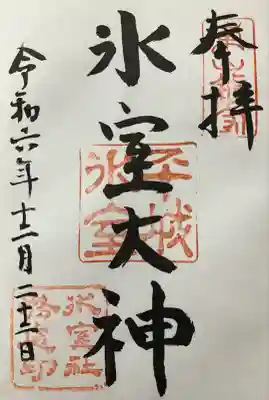 奉拝
氷室大神
平城
氷室
令和六年十二月二十二日
氷室社
務之印